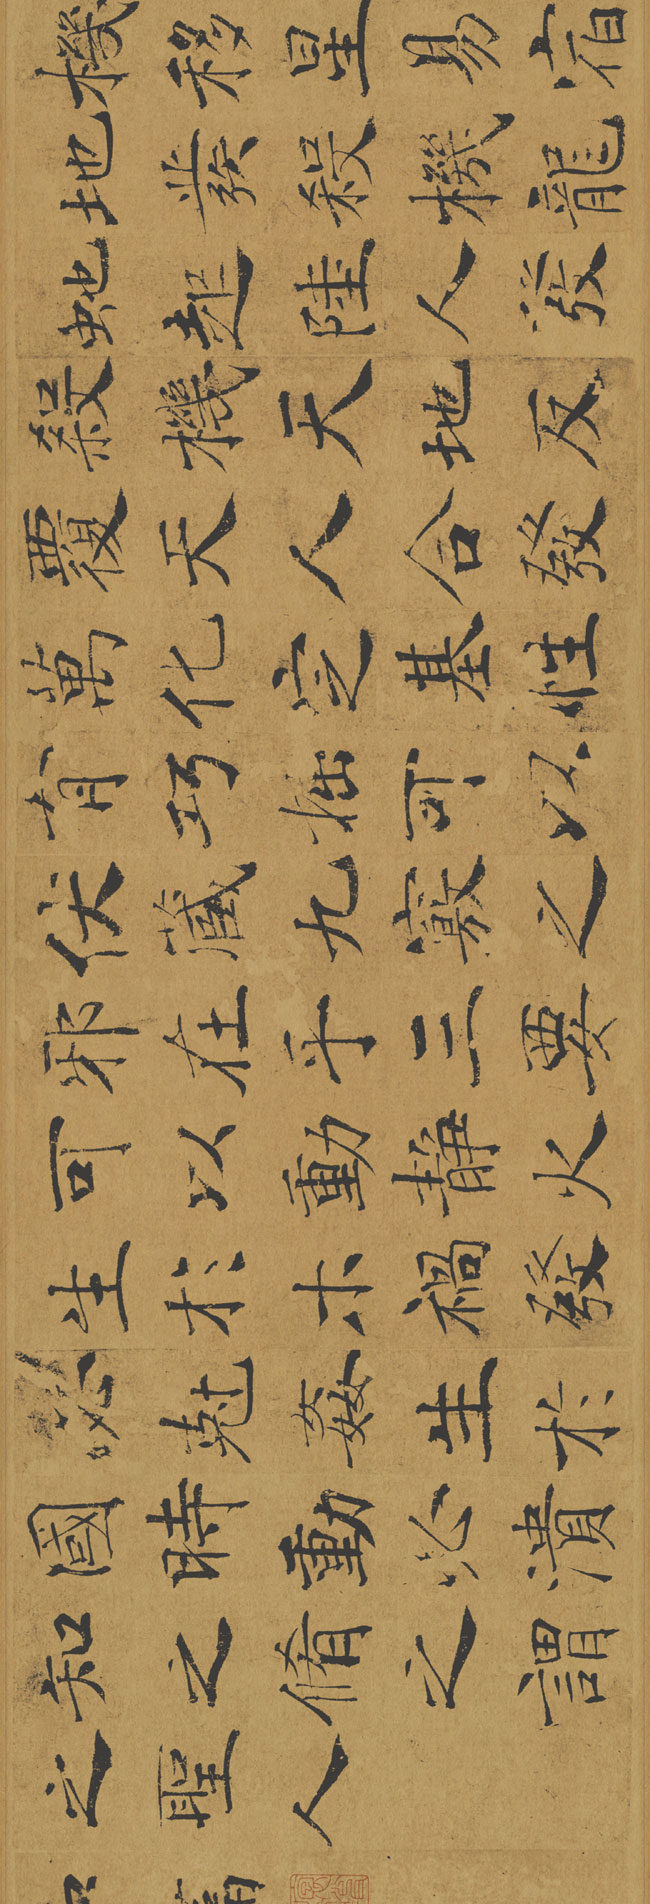 機移星易宿
地發殺機龍
蛇起陸人發
殺機天地反
覆天人合發
萬化定基性
有巧拙可以
伏藏九竅之
邪在乎三要
可以動靜火
生於木禍發
必尅姦生於
國時動必潰
知之脩之謂
之聖人